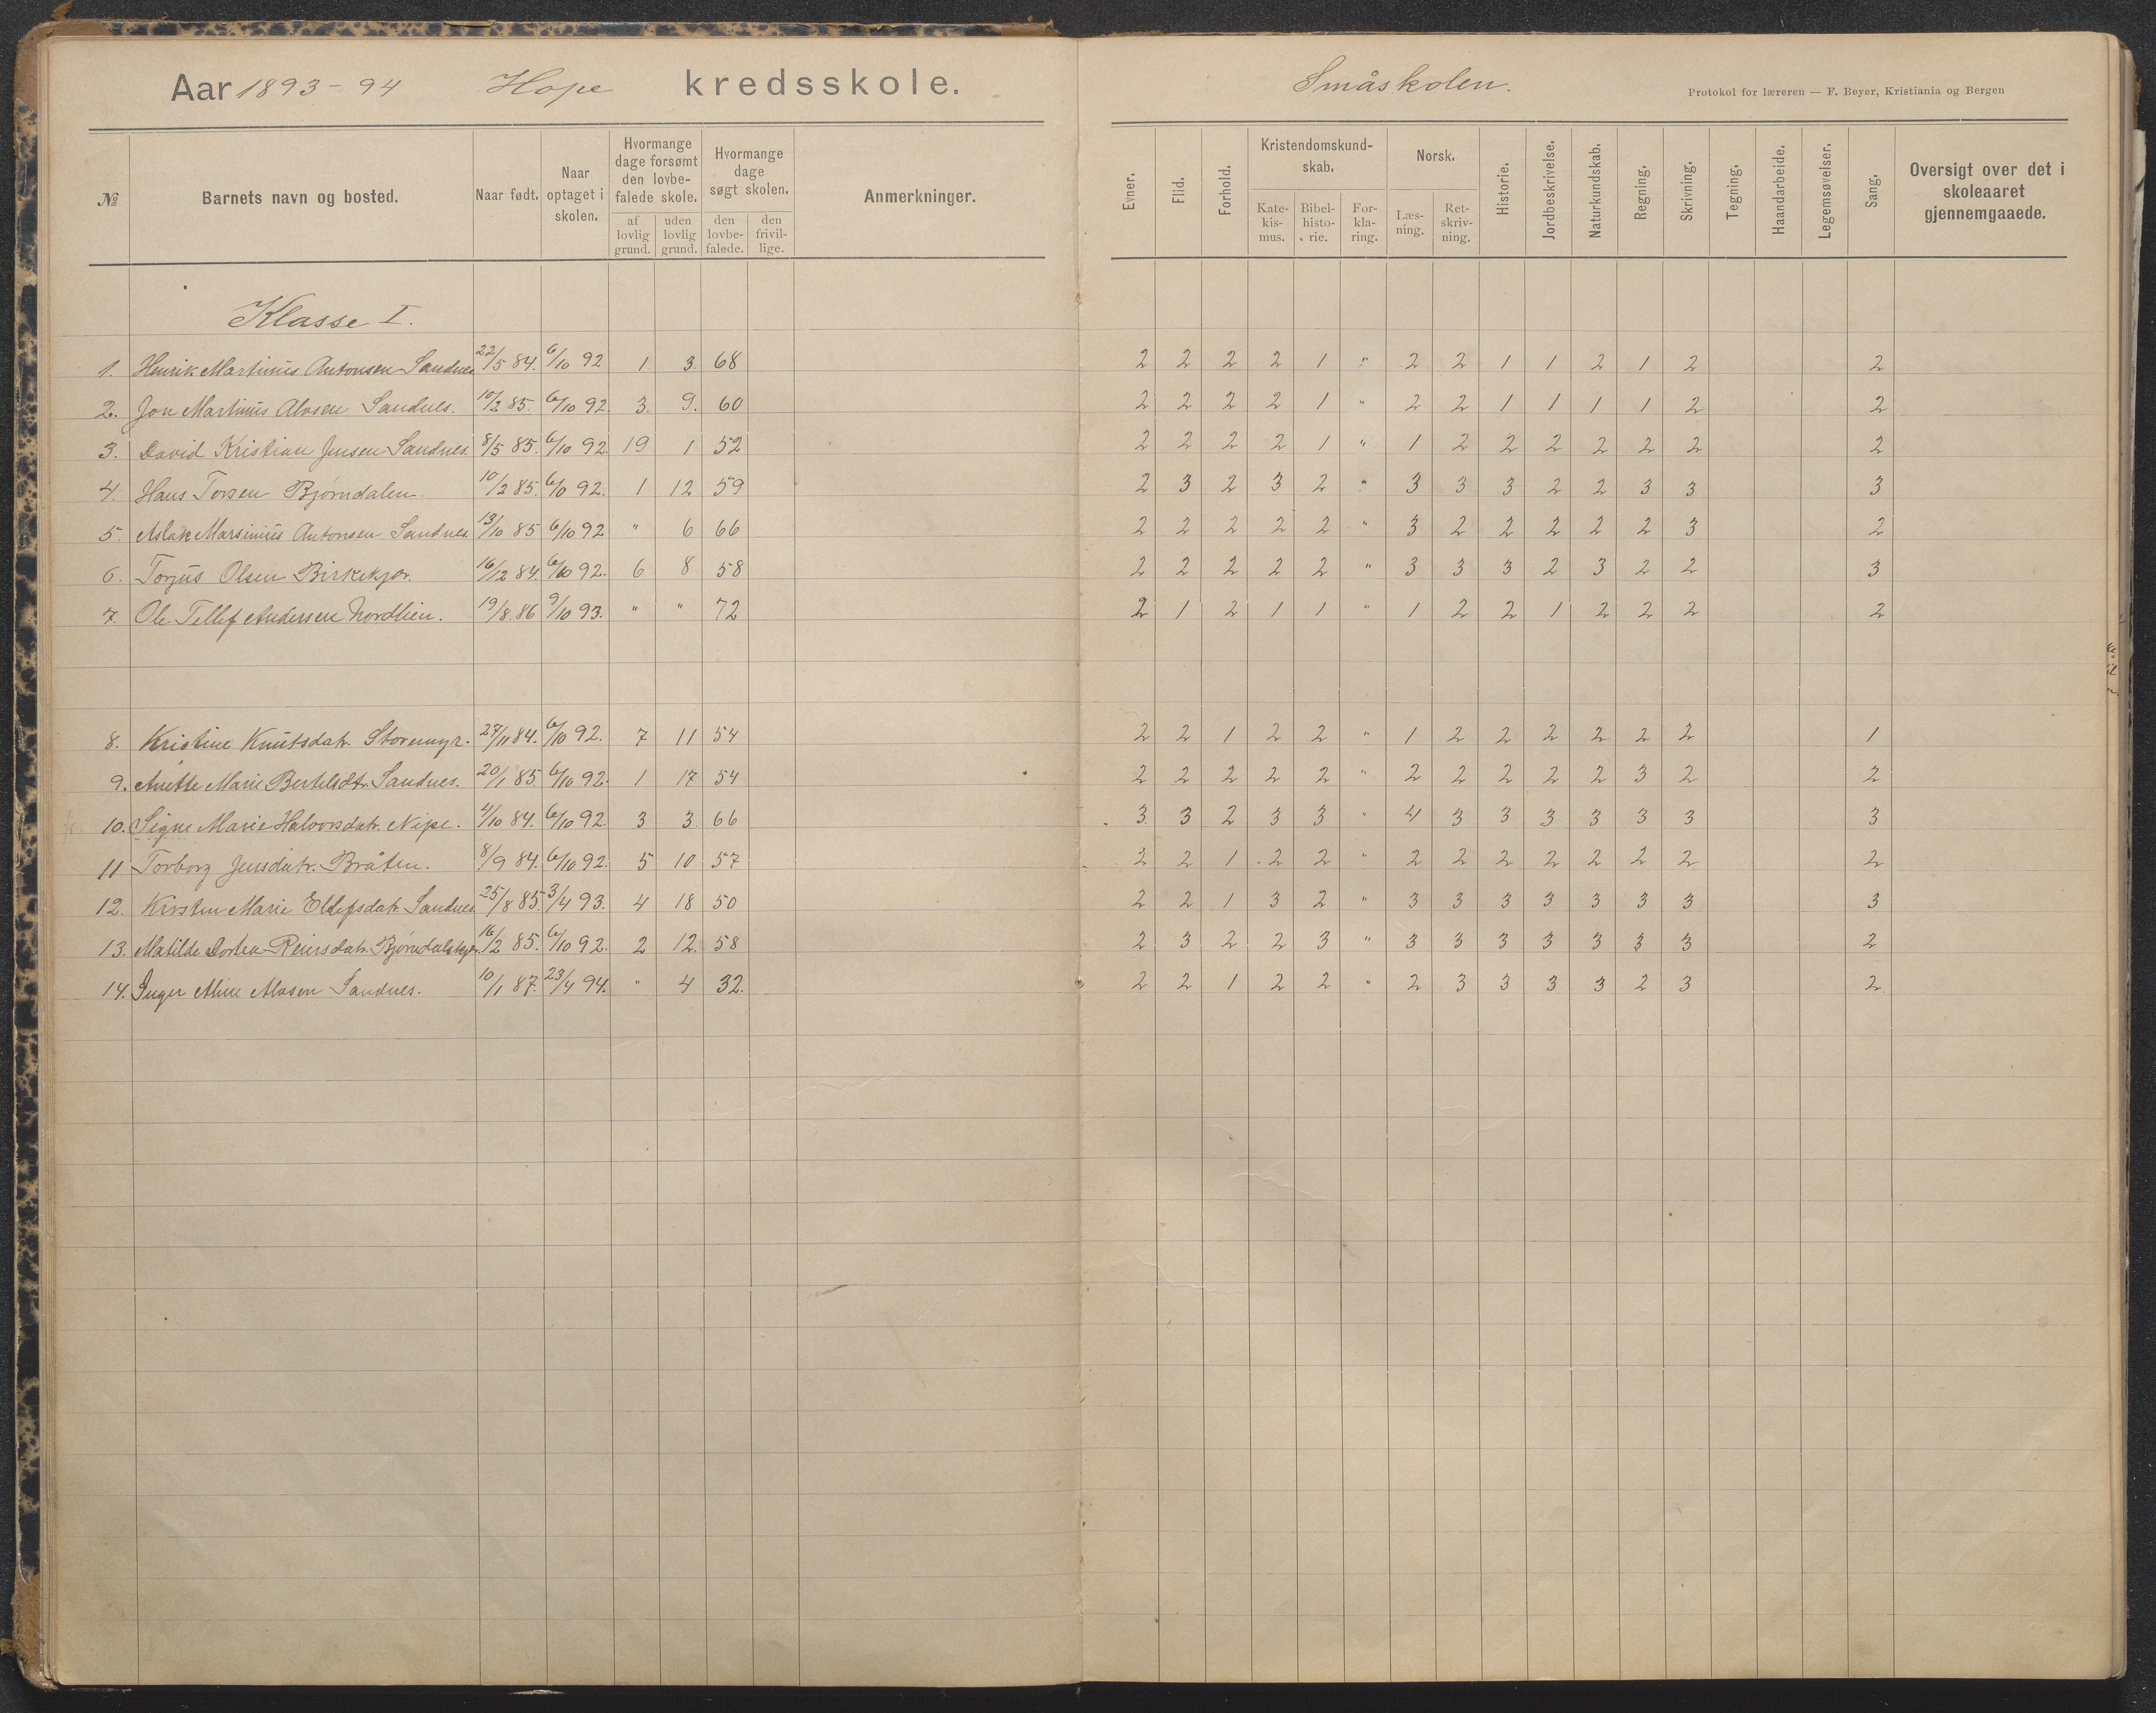 Aar 1893-94 Hope kredsskole.
Småskolen.
Protokol for læreren — F. Beyer, Kristiania og Bergen
№ Barnets navn og bosted. Naar født. Naar optaget i skolen. Hvormange dage forsømt den lovbefalede skole. af lovlig grund. uden lovlig grund. Hvormange dage søgt skolen. den lovbefalede. den frivillige. Anmerkninger.
Evner. Flid. Forhold. Kristendomskundskab. Katekismus. Bibelhistorie. Forklaring. Norsk. Læsning. Retskrivning. Historie. Jordbeskrivelse. Naturkundskab. Regning. Skrivning. Tegning. Haandarbeide. Legemsøvelser. Sang. Oversigt over det i skoleaaret gjennemgaaede.
Klasse I.
1. Henrik Martinius Antonsen Sandnes 22/5 84. 6/10 92 1 3. 68 2 2 2 2 1 " 2 2 1 1 2 1 2 2
2. Jon Martinius Alvsen Sandnes. 10/2 85. 6/10 92. 3. 9. 60 2 2 2 2 1 " 2 2 1 1 1 1 2 2
3. David Kristian Jensen Sandnes. 8/5 85. 6/10 92. 19 1 52 2 2 2 2 1 " 1 2 2 2 2 2 2 2
4. Hans Torsen Bjørndalen. 10/2 85. 6/10 92. 1 12 59 2 3 2 3 2 " 3 3 3 2 2 3 3 3
5. Aslak Marsinius Antonsen Sandnes 13/10 85 6/10 92 " 6 66 2 2 2 2 2 " 3 2 2 2 2 2 3 2
6. Torjus Olsen Birkekjær. 16/12 84. 6/10 92. 6 8 58 2 2 2 2 2 " 3 3 3 2 3 2 2 3
7. Ole Tellef Andersen Nordlien. 19/8 86 9/10 93. " " 72 2 1 2 1 1 " 1 2 2 1 2 2 2 2
8. Kristine Knutsdatr. Stovemyr. 27/11 84. 6/10 92. 7 11 54 2 2 1 2 2 " 1 2 2 2 2 2 2 1
9. Anette Marie Bertelsdtr Sandnes. 20/1 85 6/10 92. 1 17 54 2 2 2 2 2 " 2 2 2 2 2 3 2 2
10. Signe Marie Halvorsdatr. Nipe. 4/10 84. 6/10 92. 3 3. 66 3 3 2 3 3 " 4 3 3 3 3 3 3 3
11 Torborg Jensdatr. Bråten. 8/9 84. 6/10 92. 5 10 57 2 2 1 2 2 " 2 2 2 2 2 2 2 2
12. Kirsten Marie Ellefsdatr. Sandnes. 25/8 85. 3/4 93. 4 18 50 2 2 1 3 2 " 3 3 3 3 3 3 3 3
13. Matilde Dortea Reiersdatr. 16/2 85. 6/10 92. 2 12. 58 2 3 2 2 3 " 3 3 3 3 3 3 3 2
14. Inger Aline Alvsen Sandnes. 10/1 87. 23/4 94. " 4 32. 2 2 1 2 2 " 2 3 3 3 3 2 3 2